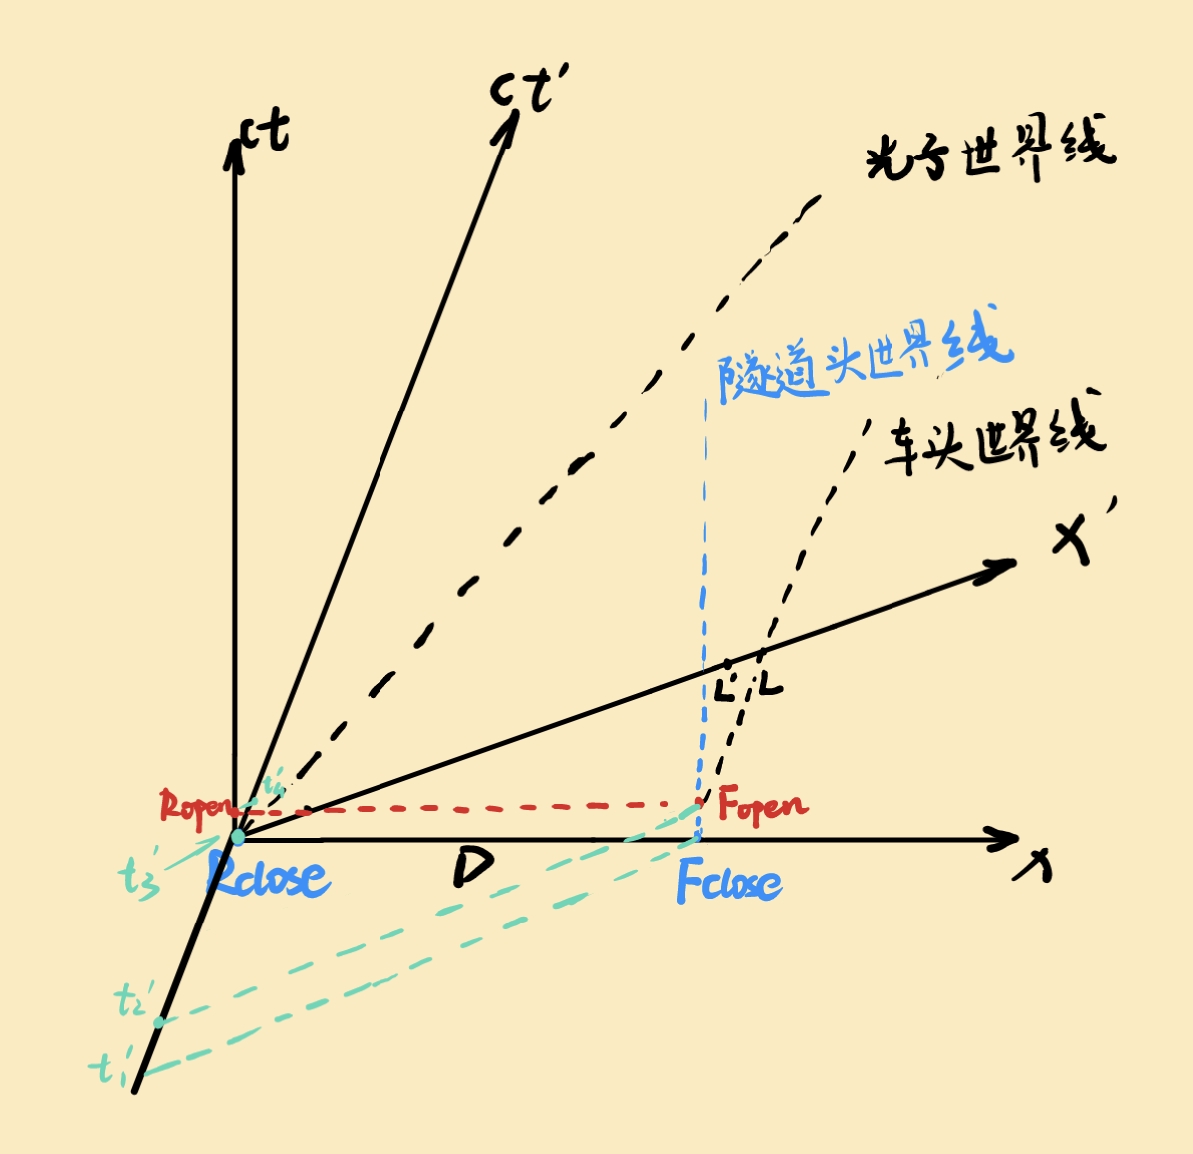 ct
ct′
光子世界线
隧道头世界线
车头世界线
x′
L′
L
t₄′
Ropen
Fopen
t₃′
Rclose
D
Fclose
x
t₂′
t₁′